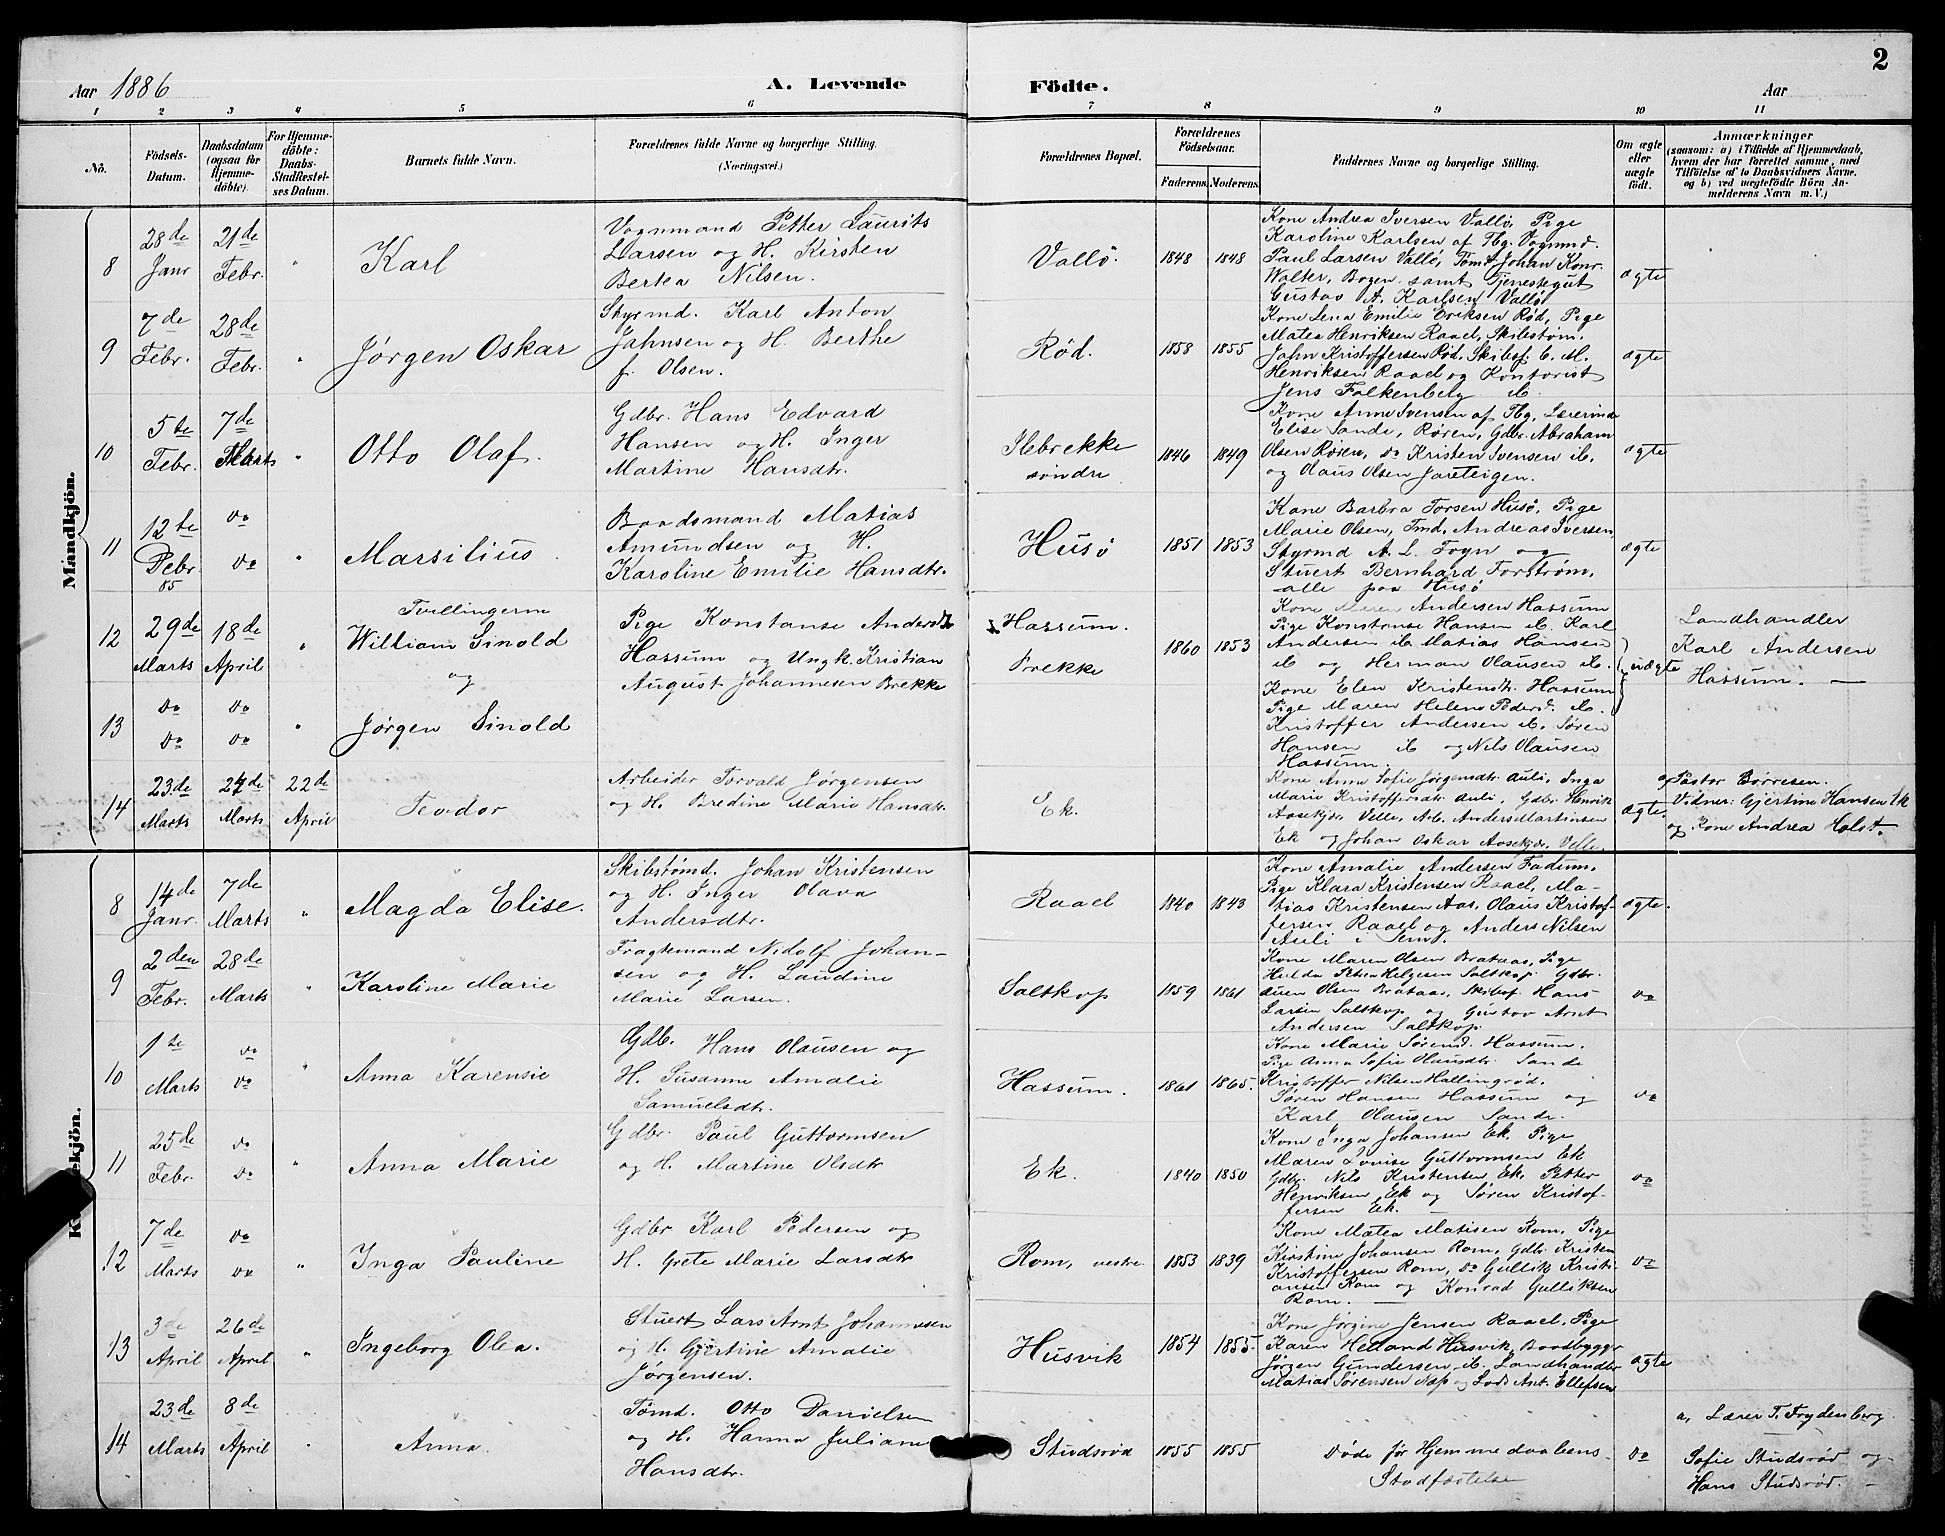 2
Aar 1886
A. Levende Födte.
Aar
1 2 3 4 5 6 7 8 9 10 11
No.
Födsels-Datum.
Daabsdatum (ogsaa for Hjemme-döbte).
For Hjemme-döbte: Daabs-Stadfæstel-ses Datum.
Barnets fulde Navn.
Forældrenes fulde Navne og borgerlige Stilling. (Næringsvei.)
Forældrenes Bopæl.
Forældrenes Födselsaar.
Faderens. Moderens.
Faddernes Navne og borgerlige Stilling.
Om ægte eller uægte födt.
Anmærkninger
(saasom: a) i Tilfælde af Hjemmedaab,
hvem der har forrettet samme, med
Tilföielse af to Daabsvidners Navne.
og b) ved uægtefödte Börn An-
melderens Navn m. V.)
Mandkjön.
8
28de Janr
21de Febr.
"
Karl
Vognmand Petter Laurits
Larsen og H. Kirsten
Bertea Nilsen.
Vallö.
1848 1848
Kone Andrea Iversen Vallö, Pige
Karoline Karlsen af Tbg. Vognmd.
Paul Larsen Vallö, Tømd Johan Konr.
Walter, Bogen samt Tjenestegut
Gustav A. Karlsen Vallö
ægte
9
7de Febr.
28de Febr.
"
Jørgen Oskar
Styrmd. Karl Anton
Jahnsen og H. Berthe
f. Olsen.
Rød.
1858 1855
Kone Lena Emilie Eriksen Rød, Pige
Matea Henriksen Raael, Skibstøm.
Jahn Kristoffersen Rød, Skibsf. C. M.
Henriksen Raael og Kontorist
Jens Falkenberg ib.
ægte
10
5te Febr.
7de Marts
"
Otto Olaf.
Gdbr. Hans Edvard
Hansen og H. Inger
Martine Hansdtr.
Ilebrekke
søndre
1846 1849
Kone Anne Svensen af Tbg, Lærerinde
Elise Sande, Røren, Gdbr. Abraham
Olsen Røren, do Kristen Svensen ib.
og Olaus Olsen Jareteigen.
ægte
11
12te Febr. 85
do do
"
Marsilius.
Baadsmand Matias
Amundsen og H.
Karoline Emilie Hansdtr.
Husø
1851 1853
Kone Barbra Torsen Husø, Pige
Marie Olsen, Tmd. Andreas Iversen
Styrmd A. L. Foyn og
Stuert Bernhard Forstrøm,
alle paa Husø
ægte
12
29de Marts
18de April
"
Tvillingerne
William Sinold
og
Pige Konstanse Andersdtr
Hassum og Ungk. Kristian
August Johannesen Brekke
Hassum.
Brekke
1860 1853
Kone Maren Andersen Hassum
Pige Konstanse Hansen ib. Karl
Andersen ib. Matias Hansen
ib og Herman Olausen ib.
uægte
Landhandler
Karl Andersen
Hassum. —
13
do do
do do
"
Jørgen Sinold
Kone Elen Kristensdtr. Hassum
Pige Maren Helene Pedersd. ib.
Kristoffer Andersen ib. Søren
Hansen ib og Nils Olausen
Hassum.
14
23de Marts
27de Marts
22de April
Teodor
Arbeider Torvald Jørgensen
og H. Bredine Marie Hansdtr.
Ek.
Kone Anna Sofie Jørgensdtr. Auli, Inga
Marie Kristoffersdtr. Auli, Gdbr. Henrik
Aasekjær, Velle, Arb. Anders Martinsen
Ek og Johan Oskar Aasekjær, Velle.
ægte.
a, Pastor Børresen.
Vidner: Gjertine Hansen Ek
og Kone Andrea Holst.
8
14de Janr.
7de Marts
"
Magda Elise.
Skibstømd. Johan Kristensen
og H. Inger Olava
Andersdtr.
Raael
1840 1843
Kone Amalie Andersen Fadum.
Pige Klara Kristensen Raael, Ma-
tias Kristensen Aas, Olaus Kristof-
fersen Raael og Anders Nilsen
Auli i Sem.
ægte.
9
2den Febr.
28de Marts
"
Karoline Marie
Fragtemand Nidolf Johan-
sen og H. Laudine
Marie Larsen.
Saltkop
1859 1861
Kone Maren Olsen Brataas, Pige
Hulda Petrea Helgesen Saltkop. Gdbr.
Auen Olsen Brataas, Skibsf. Hans
Larsen Saltkop og Gustav Arnt
Andersen Saltkop.
do
10
1ste Marts
do do
"
Anna Karensie
Gdb. Hans Olausen og
H. Susanne Amalie
Samuelsdtr.
Hassum.
1861 1865.
Kone Marie Sørensd. Hassum.
Pige Anna Sofie Olausdtr. Sande
Kristoffer Nilsen Hallingrød.
Søren Hansen Hassum og
Karl Olausen Sande.
do
11
25de Febr.
do do
"
Anna Marie
Gdbr. Paul Guttormsen
og H. Martine Olsdtr
Ek.
1840 1850
Kone Inga Johansen Ek. Pige
Maren Lovise Guttormsen Ek
Gdbr. Nils Kristensen Ek, Petter
Henriksen Ek og Søren Kristof-
fersen Ek.
do
12
7de Marts
do do
"
Inga Pauline
Gdbr Karl Pedersen og
H. Grete Marie Larsdtr
Rom, vestre
1853 1839
Kone Matea Matisen Rom, Pige
Kirstine Johansen Rom, Gdb. Kristen
Kristoffersen Rom, do Gullik Kristi-
ansen Rom og Konrad Gulliksen
Rom. —
do
13
3de April
26de April
"
Ingeborg Olea.
Stuert Lars Arnt Johannesen
og H. Gjertine Amalie
Jørgensen.
Husvik
1854 1855.
Kone Jørgine Jensen Raael, Pige
Karen Helland Husvik, Baadbygger
Jørgen Gundersen ib. Landhandler
Matias Sørensen Næs og Lods Ant. Ellefsen
ægte
14
23de Marts
8de April
"
Anna.
Tømd. Otto Danielsen
og H. Hanna Juliane
Hansdtr.
Studsrød
1855 1855
Døde før Hjemmedaabens
Stadfæstelse
do
a, Lærer T. Frydenberg
Sofie Studsrød og
Hans Studsrød. -